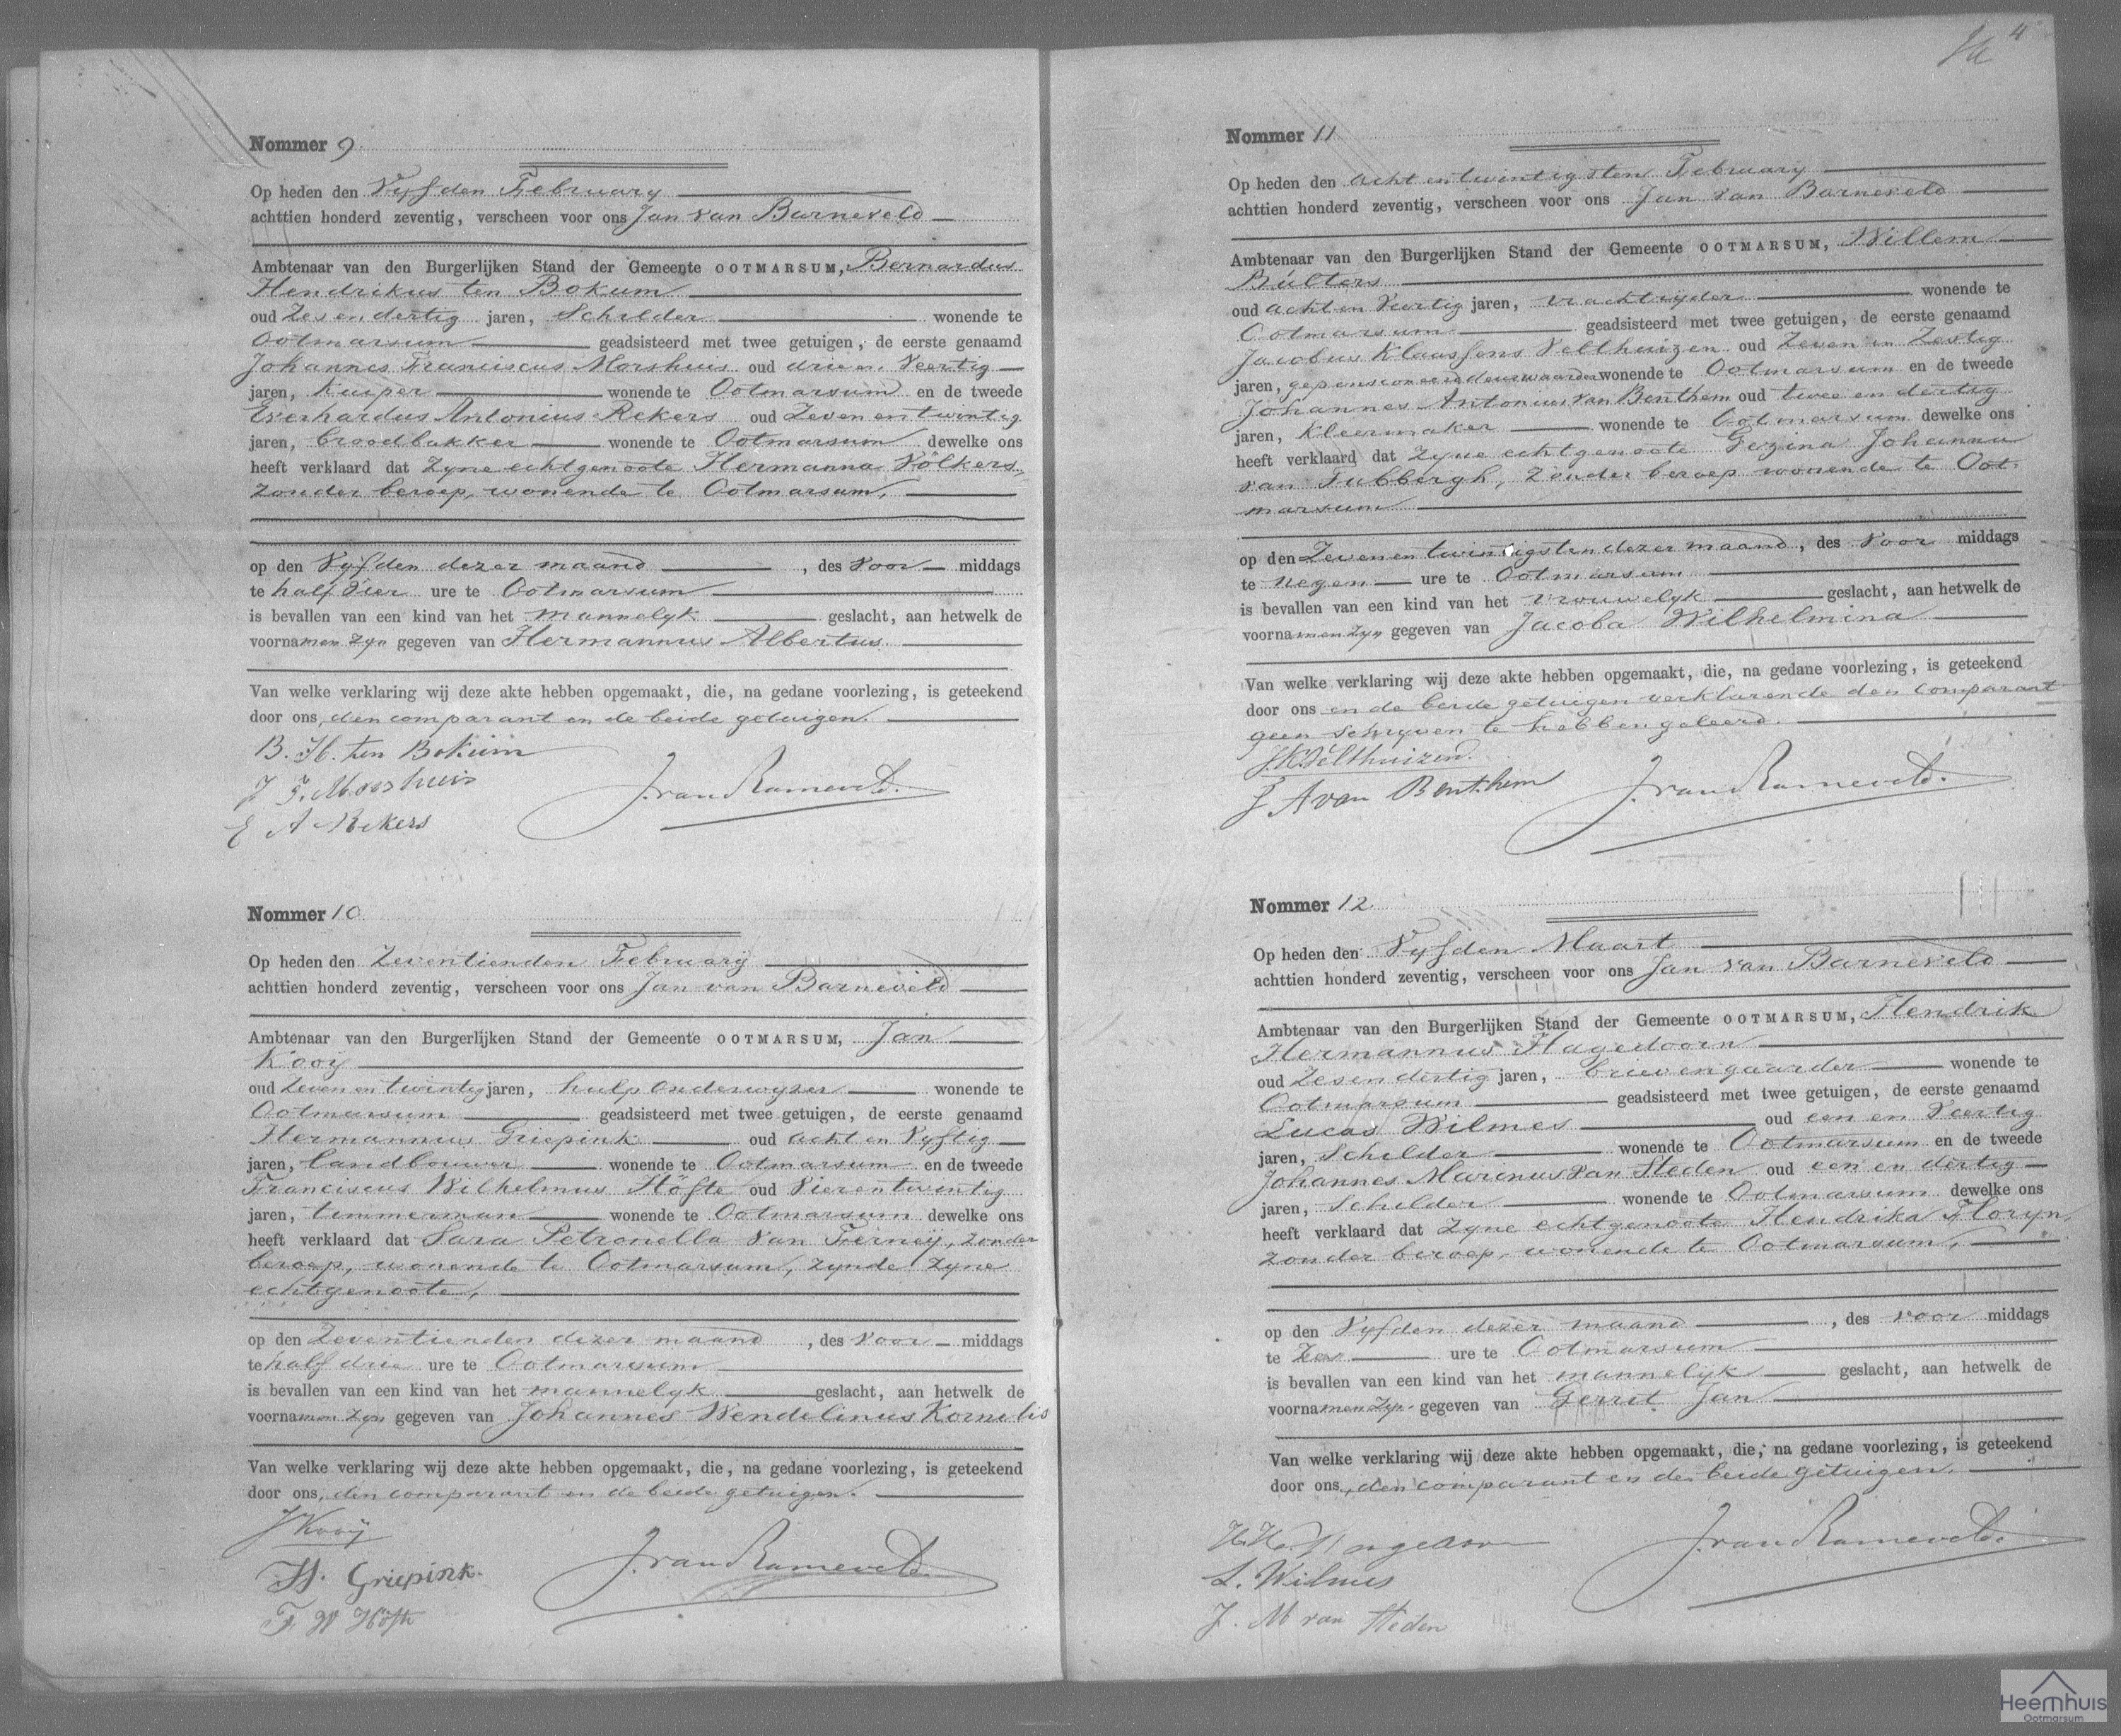 Nommer 9
Op heden den Vyfden February
achttien honderd zeventig, verscheen voor ons Jan van Barneveld
Ambtenaar van den Burgerlijken Stand der Gemeente OOTMARSUM, Bernardus
Hendrikus ten Bokum
oud Zesendertig jaren, Schilder wonende te
Ootmarsum geadsisteerd met twee getuigen, de eerste genaamd
Johannes Franciscus Morshuis oud drieen Veertig
jaren, Kuiper wonende te Ootmarsum en de tweede
Everhardus Antonius Rekers oud Zevenentwintig
jaren, broodbakker wonende te Ootmarsum dewelke ons
heeft verklaard dat Zyne echtgenoote Hermanna Völkers,
zonder beroep, wonende te Ootmarsum,
op den Vyfden dezer maand, des Voor middags
te half Vier ure te Ootmarsum
is bevallen van een kind van het mannelyk geslacht, aan hetwelk de
voornamen zyn gegeven van Hermannus Albertus
Van welke verklaring wij deze akte hebben opgemaakt, die, na gedane voorlezing, is geteekend
door ons, den comparant en de beide getuigen.
B. H. ten Bokum
J F. Morshuis
J. van Barneveld.
E A Rekers
Nommer 10
Op heden den Zeventienden February
achttien honderd zeventig, verscheen voor ons Jan van Barneveld
Ambtenaar van den Burgerlijken Stand der Gemeente OOTMARSUM, Jan
Kooij
oud Zevenentwintig jaren, hulp onderwyzer wonende te
Ootmarsum geadsisteerd met twee getuigen, de eerste genaamd
Hermannus Griepink oud acht en Vyftig
jaren, landbouwer wonende te Ootmarsum en de tweede
Franciscus Wilhelmus Höfte oud Vierentwintig
jaren, timmerman wonende te Ootmarsum dewelke ons
heeft verklaard dat Sara Petronella Van Tierney, zonder
beroep, wonende te Ootmarsum, zynde zyne
echtgenoote,
op den Zeventienden dezer maand, des Voor middags
te half drie ure te Ootmarsum
is bevallen van een kind van het mannelyk geslacht, aan hetwelk de
voornamen zyn gegeven van Johannes Wendelinus Kornelis
Van welke verklaring wij deze akte hebben opgemaakt, die, na gedane voorlezing, is geteekend
door ons, den comparant en de beide getuigen.
J Kooij
J. van Barneveld
H. Griepink.
F W Höfte
4
Nommer 11
Op heden den acht en twintigsten February
achttien honderd zeventig, verscheen voor ons Jan van Barneveld
Ambtenaar van den Burgerlijken Stand der Gemeente OOTMARSUM, Willem
Bulters
oud achten Veertig jaren, vrachtryder wonende te
Ootmarsum geadsisteerd met twee getuigen, de eerste genaamd
Jacobus Klaassens Velthuizen oud Zeven en Zestig
jaren, gepensioneerd deurwaarder wonende te Ootmarsum en de tweede
Johannes Antonius van Benthem oud twee en dertig
jaren, Kleermaker wonende te Ootmarsum dewelke ons
heeft verklaard dat Zyne echtgenoote Gezina Johanna
van Tubbergh, zonder beroep wonende te Oot
marsum
op den Zevenen twintigsten dezer maand, des Voor middags
te negen ure te Ootmarsum
is bevallen van een kind van het vrouwelyk geslacht, aan hetwelk de
voornamen zyn gegeven van Jacoba Wilhelmina
Van welke verklaring wij deze akte hebben opgemaakt, die, na gedane voorlezing, is geteekend
door ons en de beide getuigen verklarende den comparant
geen schryven te hebben geleerd.
J.K. Velthuizen.
J A van Benthem
J. van Barneveld.
Nommer 12
Op heden den Vyfden Maart
achttien honderd zeventig, verscheen voor ons Jan van Barneveld
Ambtenaar van den Burgerlijken Stand der Gemeente OOTMARSUM, Hendrik
Hermannus Hagedoorn
oud Zesendertig jaren, brievengaarder wonende te
Ootmarsum geadsisteerd met twee getuigen, de eerste genaamd
Lucas Wilmes oud een en Veertig
jaren, Schilder wonende te Ootmarsum en de tweede
Johannes Marinus van Steden oud een en dertig
jaren, Schilder wonende te Ootmarsum dewelke ons
heeft verklaard dat Zyne echtgenoote Hendrika Floryn,
zonder beroep, wonende te Ootmarsum,
op den Vyfden dezer maand, des voor middags
te Zes ure te Ootmarsum
is bevallen van een kind van het mannelijk geslacht, aan hetwelk de
voornamen zyn gegeven van Gerrit Jan
Van welke verklaring wij deze akte hebben opgemaakt, die, na gedane voorlezing, is geteekend
door ons, den comparant en de beide getuigen.
H. H. Hagedoorn
J. van Barneveld.
L. Wilmes
J. M van Steden
Heemhuis
Ootmarsum